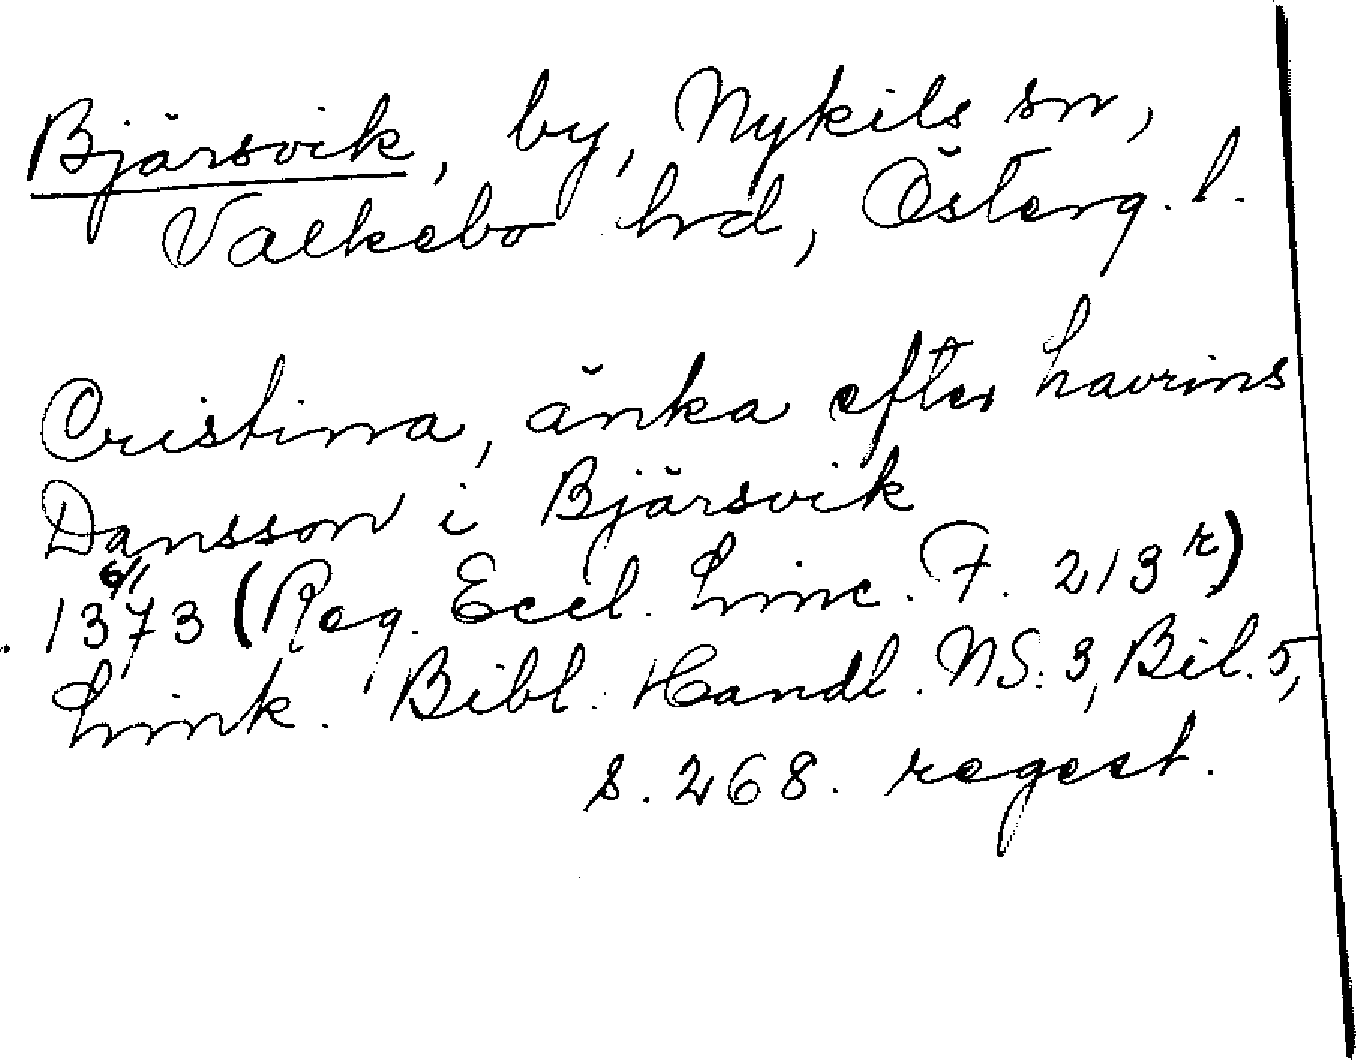 Bjärsvik, by, Nykils sn,
Valkebo hd, Österg. l.
Cristina, änka efter Laurins
Dansson i Bjärsvik
1373 6/1 (Reg. Eccl. Linc. F. 213 r)
Link. Bibl. Handl. NS. 3, Bil. 5,
s. 268. regest.